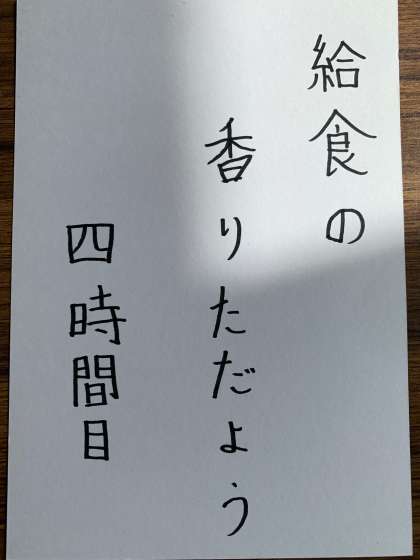 給食の
香りただよう
四時間目